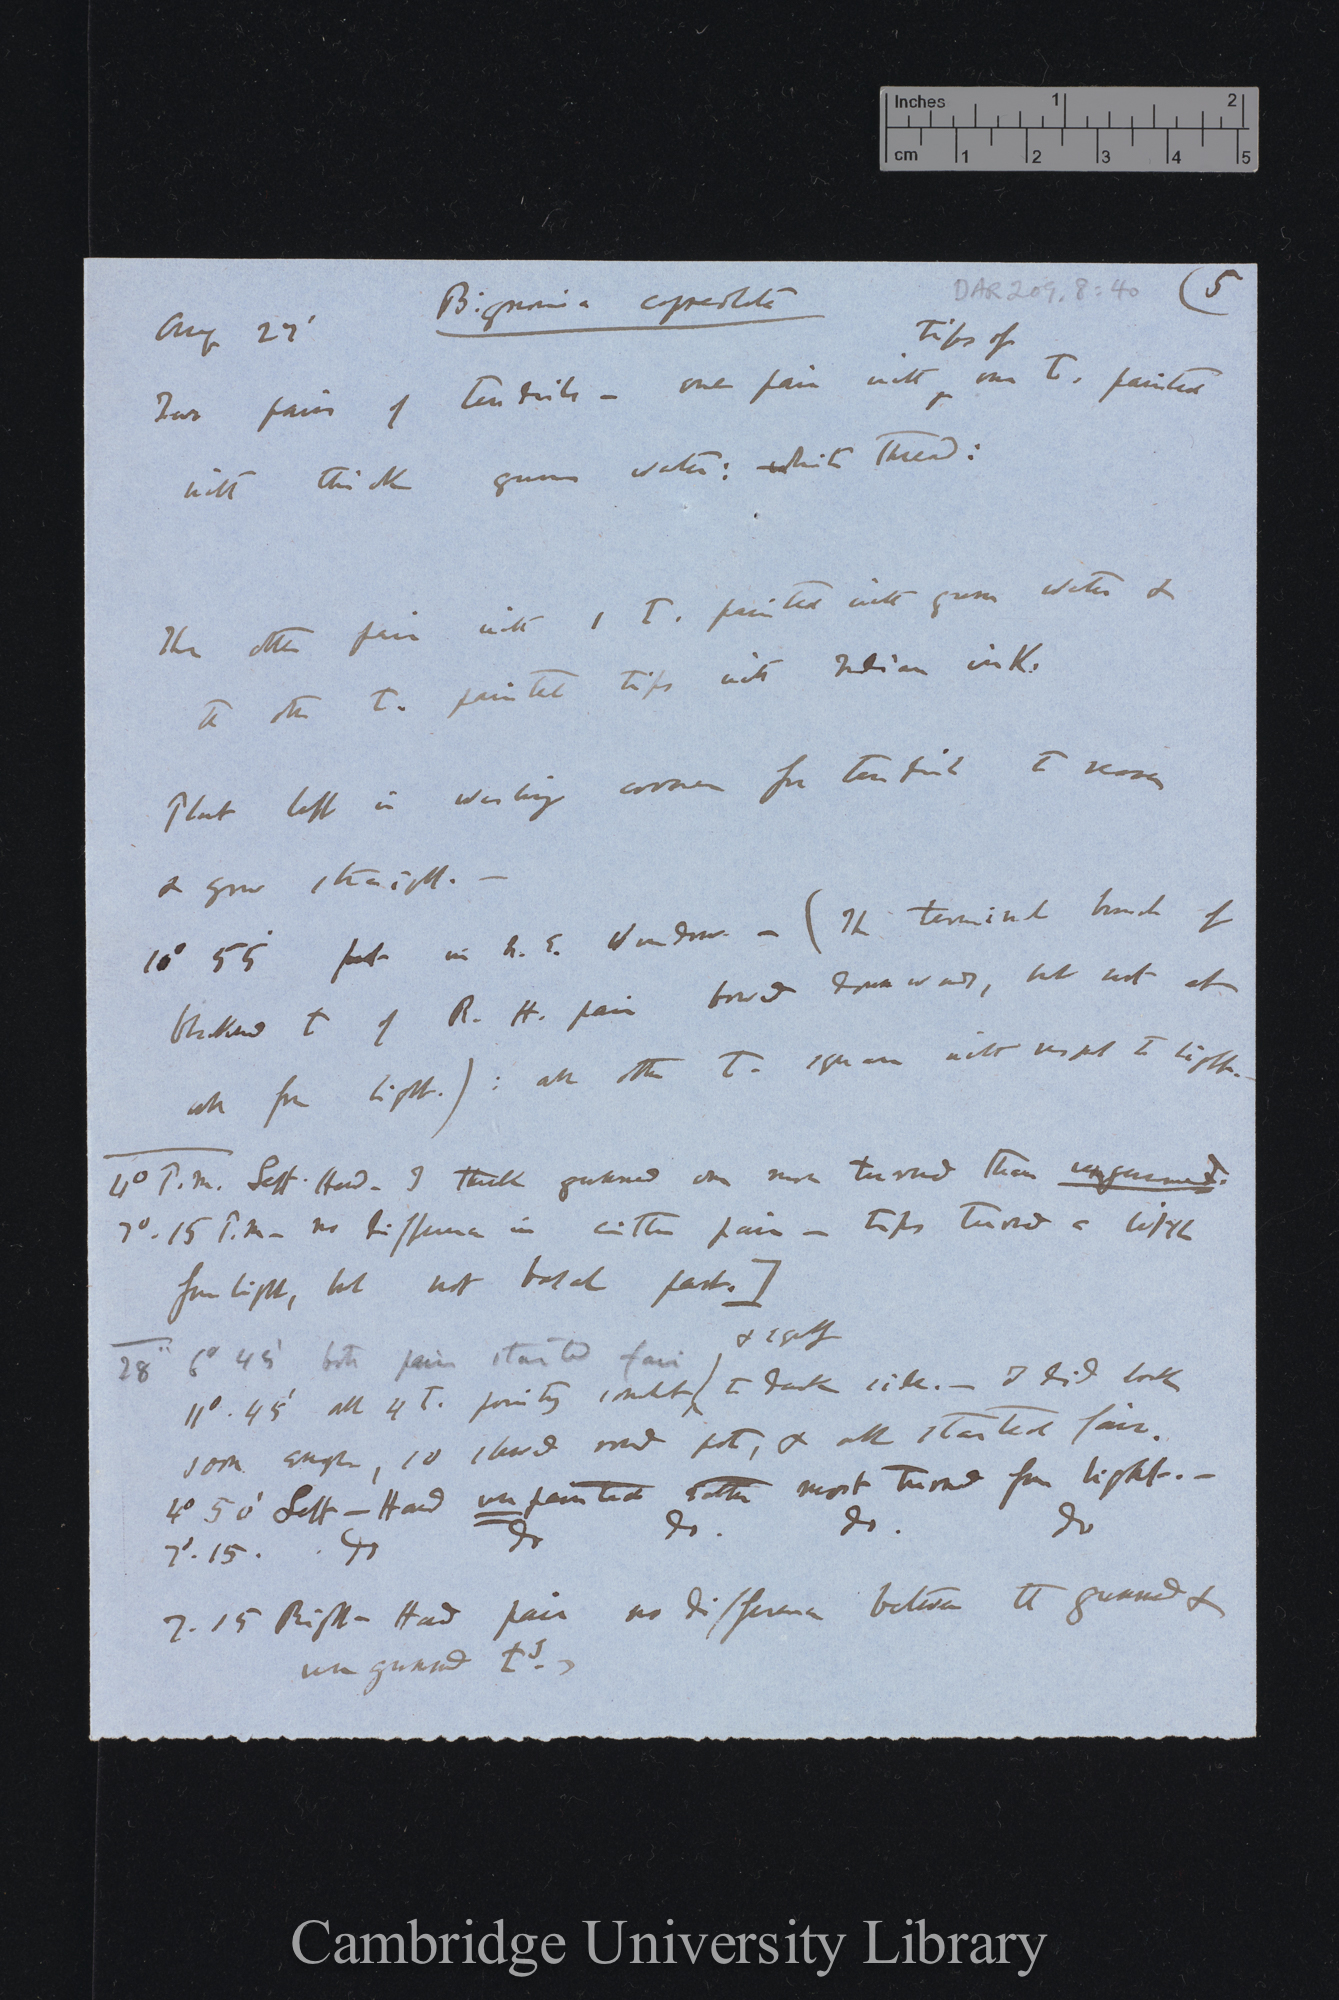 Inches 1 2
cm 1 2 3 4 5
DAR 209.8:40
(5
Bignonia capreolata
Aug 27'
tips of
Two pairs of tendrils — one pair with one T. painted
with thick gum water: white thread:
The other pair with 1 T. painted with gum water &
the other T. painted tips with Indian ink.
Plant left in corner for tendrils to recover
& grow straight. —
10° 55' put in N. E. Window — (The terminal branch of
blackened T of R. H. pair bowed downwards, but not at
all from light.) : all other T. square with respect to light. —
4° P.m. Left-Hand — I think gummed one more turned than ungummed.
7°. 15 P.m — no difference in either pair — tips turned a little
from light, but not basal part.]
28" 6° 45' both pairs started fair
& equally
11°. 45' all 4 T. pointing to dark side. — I did look
soon enough, so slewed round pot, & all started fair.
4° 50' Left — Hand unpainted rather most turned from light. —
7°. 15. do do do. do. do
7. 15 Right — Hand pair no difference between the gummed &
ungummed ts.
Cambridge University Library